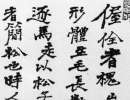 偓佺者槐
形體生毛長
逐馬走以松子
者簡松也時人